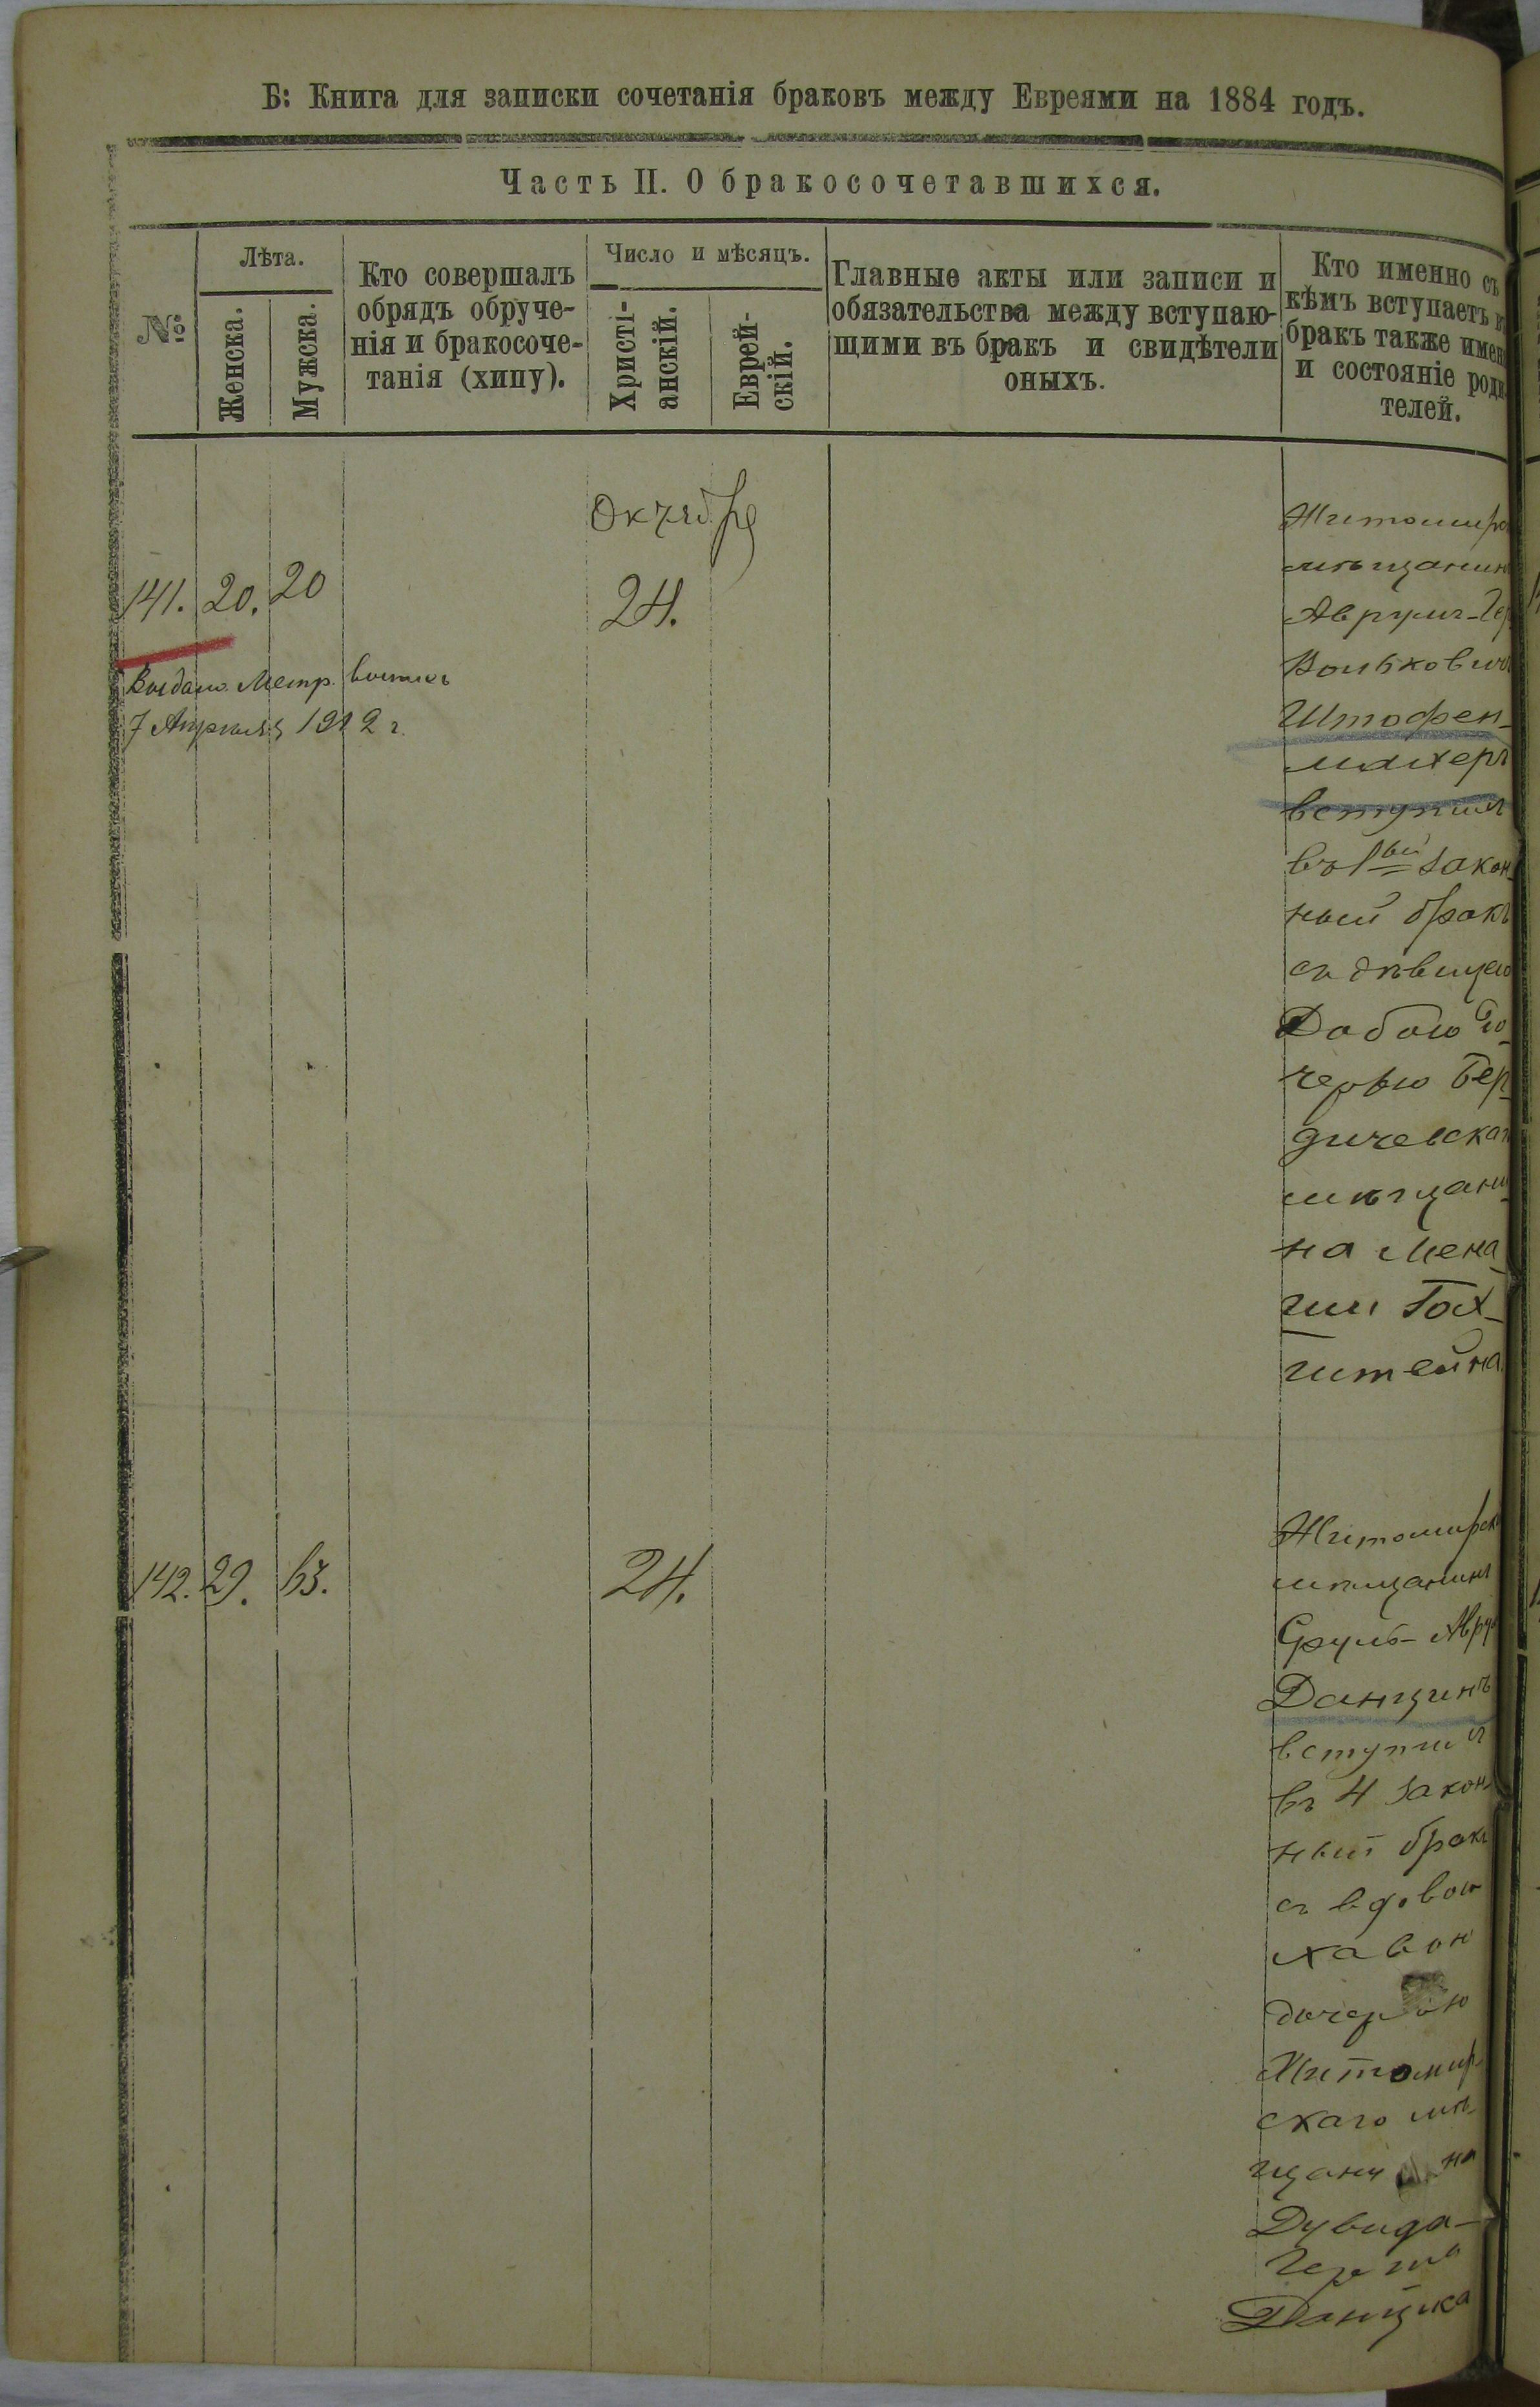 Б: Книга для записки сочетанія браковъ между Евреями на 1884 годъ.
Часть II. О бракосочетавшихся.
№
Лѣта.
Женска.
Мужска.
Кто совершалъ
обрядъ обруче-
нія и бракосоче-
танія (хипу).
Число и мѣсяцъ.
Христі-
анскій.
Еврей-
скій.
Главные акты или записи и
обязательства между вступаю-
щими въ бракъ и свидѣтели
оныхъ.
Кто именно съ
кѣмъ вступаетъ въ
бракъ также имен
и состояніе роди
телей.
Октября
141. 20. 20
24.
Выдано Метр. выпись
7 Апрѣля 1912 г.
Житомирс
мѣщанинъ
Аврумъ-Гер
Вольковичъ
Штофен-
махеръ
вступилъ
въ 1вый закон-
ный бракъ
съ дѣвицею
Добою до-
черью Бер-
дичевскаго
мѣщани-
на Мена-
ши Гох-
штейна
142. 29. 63.
24.
Житомирск
мѣщанинъ
Сруль-Авру
Данцинъ
вступилъ
въ 4 закон-
ный бракъ
съ вдовою
Хавою
дочерью
Житомир-
скаго мѣ-
щанина
Дувида-
Герша
Данцика